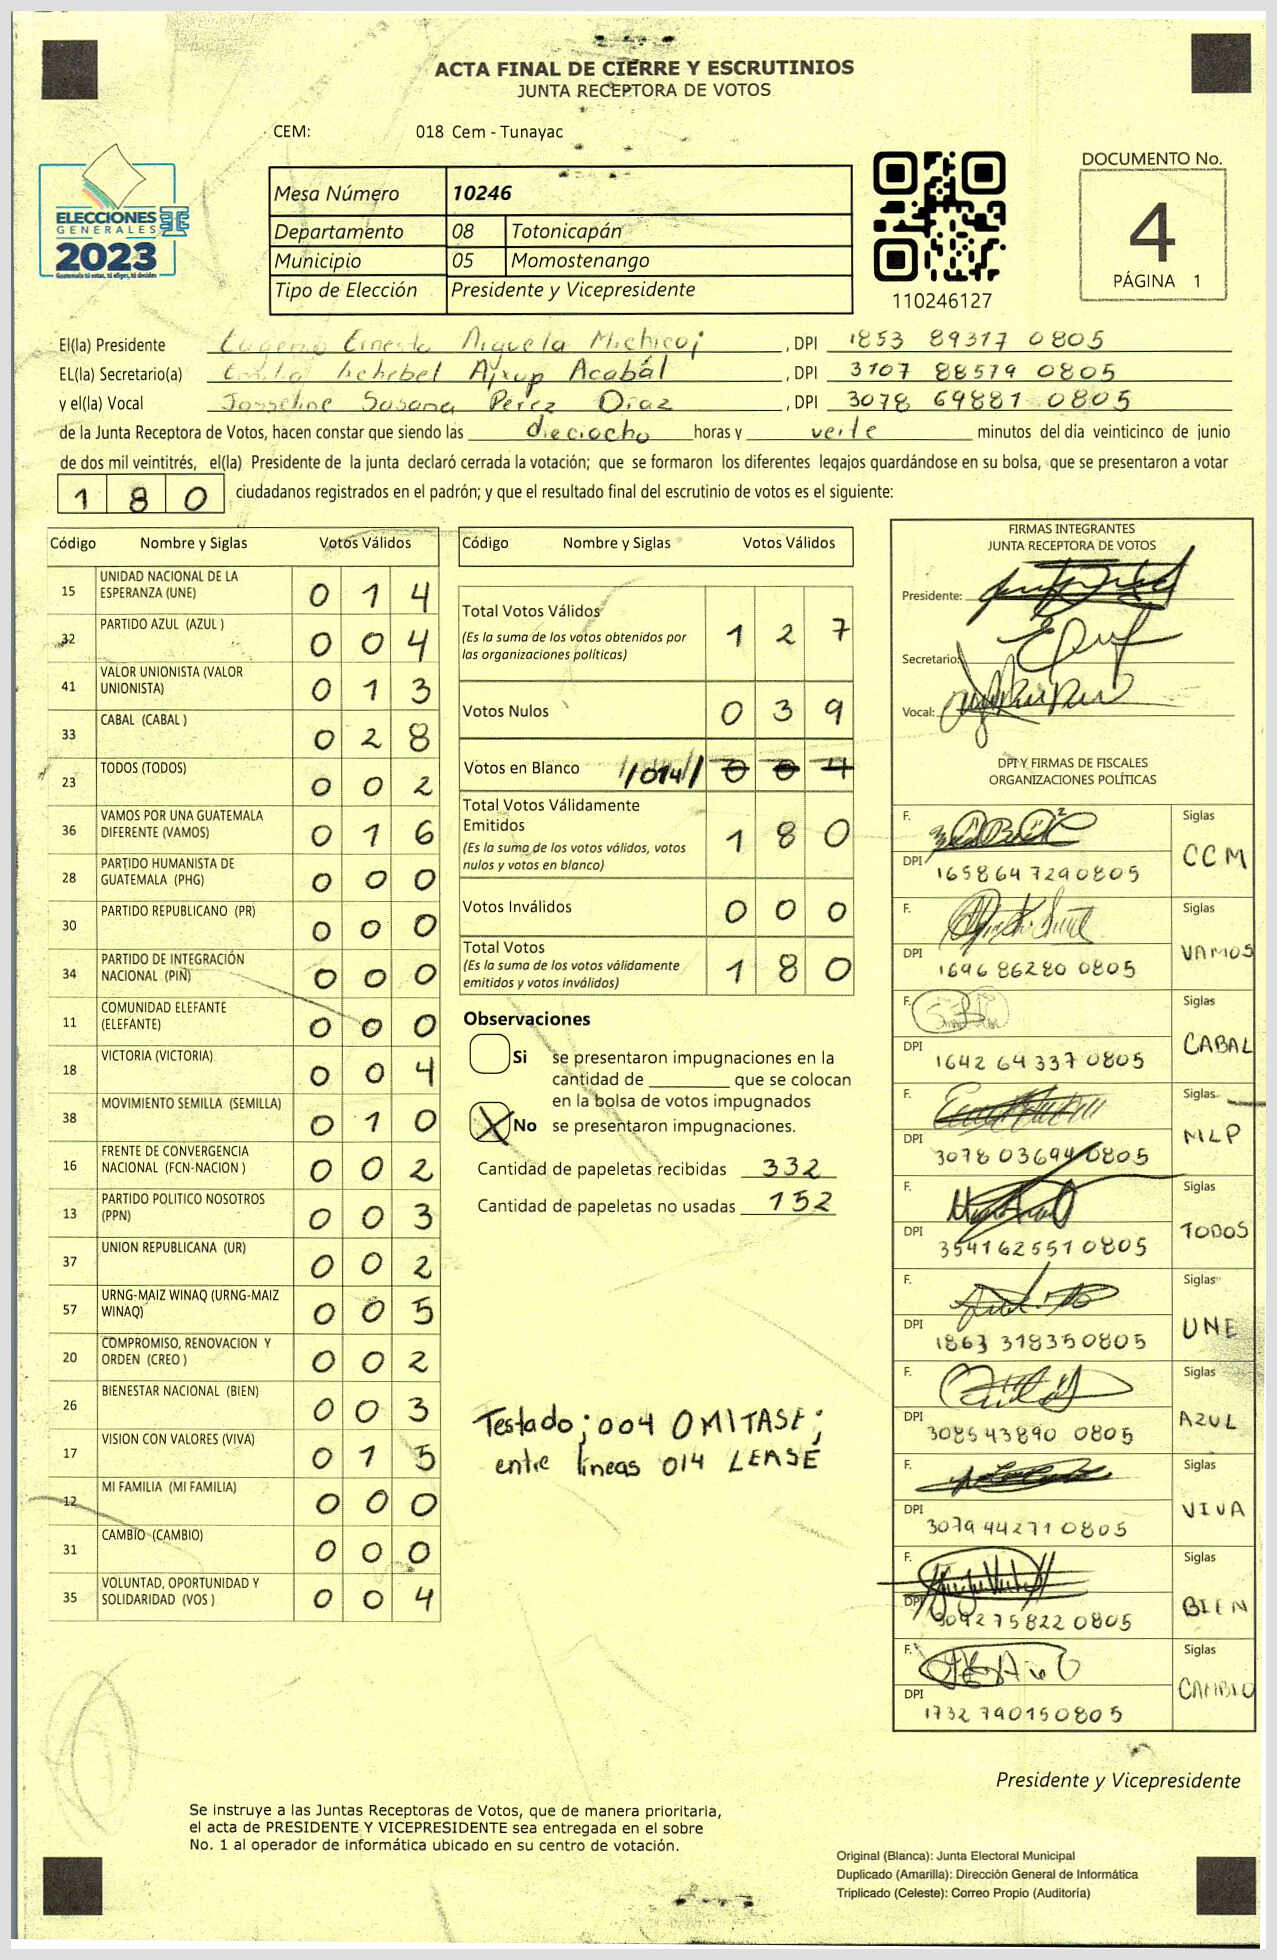 ACTA FINAL DE CIERRE Y ESCRUTINIOS
JUNTA RECEPTORA DE VOTOS
CEM: 018 Cem - Tunayac
ELECCIONES
GENERALES
2023
Guatemala tú votas, tú eliges, tú decides
Mesa Número 10246
Departamento 08 Totonicapán
Municipio 05 Momostenango
Tipo de Elección Presidente y Vicepresidente
110246127
DOCUMENTO No.
4
PÁGINA 1
El(la) Presidente Eugenio Ernesto Michicoj , DPI 1853 89317 0805
EL(la) Secretario(a) Ajxup Acabál , DPI 3107 88579 0805
y el(la) Vocal Josseline Susana Perez Diaz , DPI 3078 69881 0805
de la Junta Receptora de Votos, hacen constar que siendo las dieciocho horas y veite minutos del día veinticinco de junio
de dos mil veintitrés, el(la) Presidente de la junta declaró cerrada la votación; que se formaron los diferentes legajos guardándose en su bolsa, que se presentaron a votar
180 ciudadanos registrados en el padrón; y que el resultado final del escrutinio de votos es el siguiente:
Código Nombre y Siglas Votos Válidos
15 UNIDAD NACIONAL DE LA ESPERANZA (UNE) 0 1 4
32 PARTIDO AZUL (AZUL ) 0 0 4
41 VALOR UNIONISTA (VALOR UNIONISTA) 0 1 3
33 CABAL (CABAL ) 0 2 8
23 TODOS (TODOS) 0 0 2
36 VAMOS POR UNA GUATEMALA DIFERENTE (VAMOS) 0 1 6
28 PARTIDO HUMANISTA DE GUATEMALA (PHG) 0 0 0
30 PARTIDO REPUBLICANO (PR) 0 0 0
34 PARTIDO DE INTEGRACIÓN NACIONAL (PIN) 0 0 0
11 COMUNIDAD ELEFANTE (ELEFANTE) 0 0 0
18 VICTORIA (VICTORIA) 0 0 4
38 MOVIMIENTO SEMILLA (SEMILLA) 0 1 0
16 FRENTE DE CONVERGENCIA NACIONAL (FCN-NACION ) 0 0 2
13 PARTIDO POLITICO NOSOTROS (PPN) 0 0 3
37 UNION REPUBLICANA (UR) 0 0 2
57 URNG-MAIZ WINAQ (URNG-MAIZ WINAQ) 0 0 5
20 COMPROMISO, RENOVACION Y ORDEN (CREO ) 0 0 2
26 BIENESTAR NACIONAL (BIEN) 0 0 3
17 VISION CON VALORES (VIVA) 0 1 5
12 MI FAMILIA (MI FAMILIA) 0 0 0
31 CAMBIO (CAMBIO) 0 0 0
35 VOLUNTAD, OPORTUNIDAD Y SOLIDARIDAD (VOS ) 0 0 4
Código Nombre y Siglas Votos Válidos
Total Votos Válidos 1 2 7
(Es la suma de los votos obtenidos por
las organizaciones políticas)
Votos Nulos 0 3 9
Votos en Blanco //014// 0 0 4
Total Votos Válidamente
Emitidos 1 8 0
(Es la suma de los votos válidos, votos
nulos y votos en blanco)
Votos Inválidos 0 0 0
Total Votos 1 8 0
(Es la suma de los votos válidamente
emitidos y votos inválidos)
Observaciones
Si se presentaron impugnaciones en la
cantidad de ________ que se colocan
en la bolsa de votos impugnados
X No se presentaron impugnaciones.
Cantidad de papeletas recibidas 332
Cantidad de papeletas no usadas 152
Testado; 004 OMITASE;
entre lineas 014 LEASE
FIRMAS INTEGRANTES
JUNTA RECEPTORA DE VOTOS
Presidente:
Secretario:
Vocal:
DPI Y FIRMAS DE FISCALES
ORGANIZACIONES POLÍTICAS
F. Siglas
DPI 1658647290805 CCM
F. Siglas
DPI 1696 86280 0805 VAMOS
F. Siglas
DPI 1642 64337 0805 CABAL
F. Siglas
DPI 3078 03694 0805 MLP
F. Siglas
DPI 3541625510805 TODOS
F. Siglas
DPI 1863 318350805 UNE
F. Siglas
DPI 3085 43890 0805 AZUL
F. Siglas
DPI 3079442710805 VIVA
F. Siglas
DPI 3092758220805 BIEN
F. Siglas
DPI 1732 790150805 CAMBIO
Presidente y Vicepresidente
Se instruye a las Juntas Receptoras de Votos, que de manera prioritaria,
el acta de PRESIDENTE Y VICEPRESIDENTE sea entregada en el sobre
No. 1 al operador de informática ubicado en su centro de votación.
Original (Blanca): Junta Electoral Municipal
Duplicado (Amarilla): Dirección General de Informática
Triplicado (Celeste): Correo Propio (Auditoría)